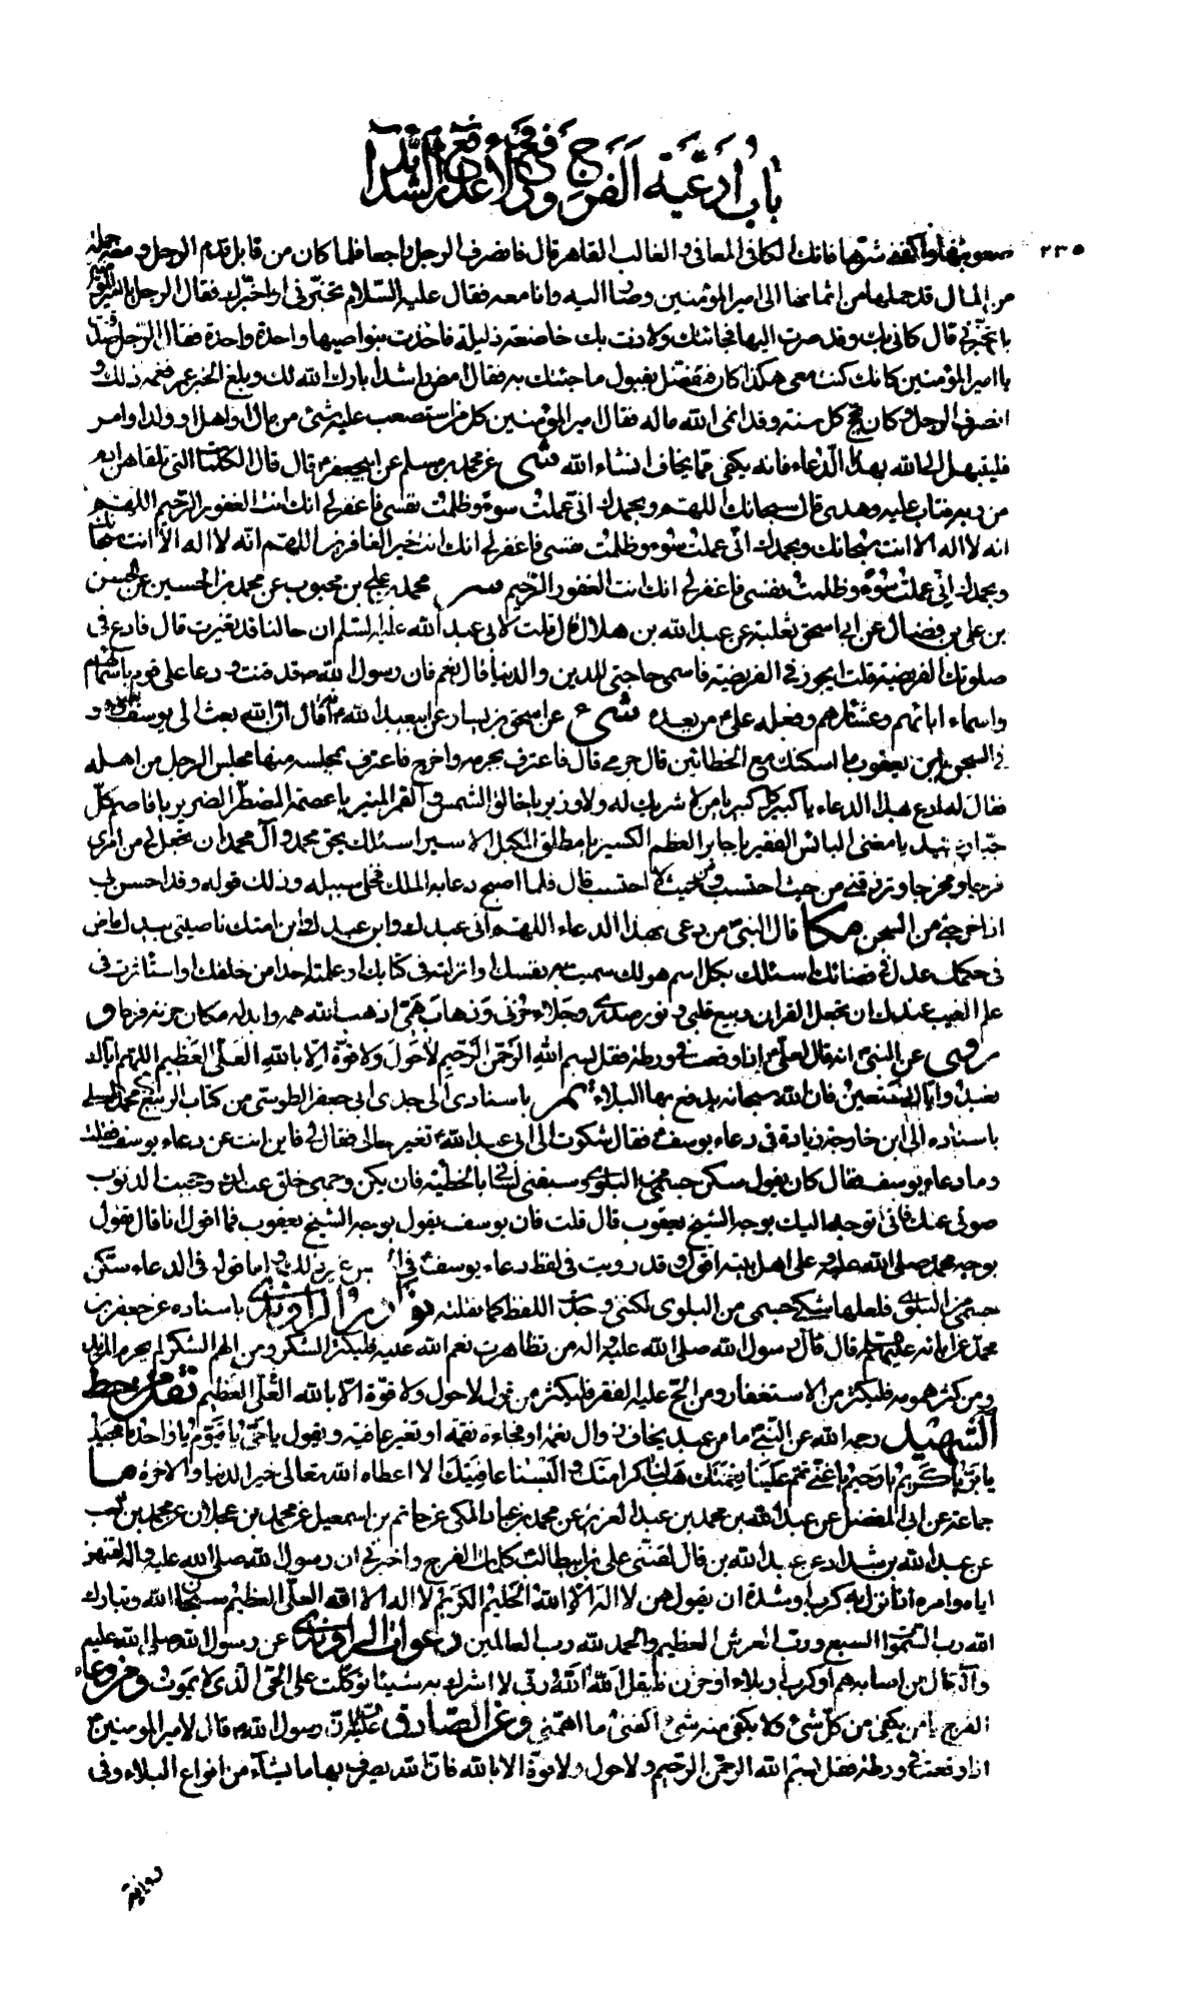 باب أدعية الفرج ودفع الأعداء ورفع الشدائد
٢٣٥
صعوبتها واكفني شرها فانك الكافي المعافي والغالب القاهر قال فانصرف الرجل راجعا فلما كان من قابل قدم الرجل ومعه جملة
من المال قد حملها من اثمانها الى امير المؤمنين وصار اليه وانا معه فقال عليه السلام تخبرني او اخبرك فقال الرجل بل تخبرني يا امير المؤمنين
قال كاني بك وقد صرت اليها فجائتك ولاذت بك خاضعة ذليلة فاخذت بنواصيها واحدة واحدة فقال الرجل صدقت
يا امير المؤمنين كانك كنت معي هكذا كان فتفضل بقبول ما جئتك به فقال امض راشدا بارك الله لك وبلغ الخبر عمر فغمه ذلك و
انصرف الرجل وكان يحج كل سنة وقد انمى الله ماله فقال امير المؤمنين كل من استصعب عليه شئ من مال او اهل او ولد او امر
فليبتهل الى الله بهذا الدعاء فانه يكفى مما يخاف انشاء الله شى عن محمد بن مسلم عن ابيجعفر قال قال الكلمات التي تلقاهن ادم
من ربه فتاب عليه وهدى قال سبحانك اللهم وبحمدك اني عملت سوء وظلمت نفسي فاغفر لي انك انت الغفور الرحيم اللهم
انه لا اله الا انت سبحانك وبحمدك اني عملت سوء وظلمت نفسي فاغفر لي انك انت خير الغافرين اللهم انه لا اله الا انت سبحانك
وبحمدك اني عملت سوء وظلمت نفسي فاغفر لي انك انت الغفور الرحيم سر محمد بن علي بن محبوب عن محمد بن الحسين عن الحسن
بن علي بن فضال عن ابي اسحق ثعلبة عن عبد الله بن هلال قال قلت لابي عبد الله عليه السلام ان حالنا قد تغيرت قال فادع في
صلوتك الفريضة قلت ايجوز في الفريضة فاسمى حاجتي للدين والدنيا قال نعم فان رسول الله ص قد قنت ودعا على قوم باسمائهم
واسماء ابائهم وعشائرهم وفعله علي من بعده شى عن اسحق بن يسار عن ابيعبد الله انه قال ان الله بعث الى يوسف وهو
في السجن يابن يعقوب ما اسكنك مع الخطائين قال جرمي قال فاعترف بجرمه واخرج فاعترف بمجلسه منها مجلس الرجل من اهله
فقال له ادع بهذا الدعاء يا كبير كل كبير يا من لا شريك له ولا وزير يا خالق الشمس والقمر المنير يا عصمة المضطر الضرير يا قاصم كل
جبار عنيد يا مغني البائس الفقير يا جابر العظم الكسير يا مطلق المكبل الاسير اسئلك بحق محمد وآل محمد ان تجعل لي من امري
فرجا ومخرجا وترزقني من حيث احتسب ومن حيث لا احتسب قال فلما اصبح دعا به الملك فخلى سبيله وذلك قوله وقد احسن بي
اذ اخرجني من السجن مكا قال النبي من دعى بهذا الدعاء اللهم اني عبدك وابن عبدك وابن امتك ناصيتي بيدك ماض
في حكمك عدل في قضائك اسئلك بكل اسم هو لك سميت به نفسك او انزلته في كتابك او علمته احدا من خلقك او استاثرت في
علم الغيب عندك ان تجعل القران ربيع قلبي ونور صدري وجلاء حزني وذهاب همي اذهب الله همه وابدله مكان حزنه فرجا و
روى عن النبي انه قال لعلي اذا وقعت في ورطة فقل بسم الله الرحمن الرحيم لا حول ولا قوة الا بالله العلي العظيم اللهم اياك
نعبد واياك نستعين فان الله سبحانه يدفع بها البلاء باسنادي الى جدي ابي جعفر الطوسي من كتاب الربيع
باسناده الى ابن خارجة زيادة في دعاء يوسف فقال شكوت الى ابي عبد الله تغير حالي فقال لي فاين انت عن دعاء يوسف فقلت
وما دعاء يوسف فقال كان يقول سكن جسمي البلوى وسبقني لساني بالخطيئة فان يكن وجهي خلق عندك وحجبت الذنوب
صوتي عنك فاني اتوجه اليك بوجه الشيخ يعقوب قال قلت فان يوسف يقول بوجه الشيخ يعقوب فما اقول انا قال تقول
بوجه محمد صلى الله عليه وعلى اهل بيته اقول وقد رويت في لفظ دعاء يوسف في غير ذلك واما قوله في الدعاء سكن
جسمي من البلوى فلعلها شكى جسمي من البلوى لكنني وجدت اللفظ كما نقلته نوادر الراوندي باسناده عن جعفر بن
محمد عن ابائه عليهم السلام قال قال رسول الله صلى الله عليه واله من تظاهرت نعم الله عليه فليكثر الشكر ومن الهم الشكر لم يحرم المزيد
ومن كثر همومه فليكثر من الاستغفار ومن الح عليه الفقر فليكثر من قول لا حول ولا قوة الا بالله العلي العظيم نقل من خط
الشهيد رحمه الله عن النبي ما من عبد يخاف زوال نعمة او فجاءة نقمة او تغير عافية ويقول يا حي يا قيوم يا واحد يا مجيد
يا بر يا كريم يا رحيم يا غني تمم علينا نعمتك وهب لنا كرامتك والبسنا عافيتك الا اعطاه الله تعالى خير الدنيا والاخرة ما
جماعة عن ابي المفضل عن عبد الله بن محمد بن عبد العزيز عن محمد بن عباد المكي عن حاتم بن اسمعيل عن محمد بن عجلان عن محمد بن كعب
عن عبد الله بن شداد عن عبد الله بن قال لقنني علي بن ابيطالب كلمات الفرج واخبرني ان رسول الله صلى الله عليه واله لقنهن
اياه وامره اذا نزل به كرب او شدة ان يقولهن لا اله الا الله الحليم الكريم لا اله الا الله العلي العظيم سبحان الله وتبارك
الله رب السموات السبع ورب العرش العظيم والحمد لله رب العالمين دعوات الراوندي عن رسول الله صلى الله عليه
وآله قال من اصابه هم او كرب او بلاء او حزن فليقل الله الله ربي لا اشرك به شيئا توكلت على الحي الذي لا يموت ومن دعاء
الفرج يا من يكفي من كل شئ ولا يكفي منه شئ اكفني ما اهمني وعن الصادق عليه السلام ان رسول الله قال لامير المومنين
اذا وقعت في ورطة فقل بسم الله الرحمن الرحيم ولا حول ولا قوة الا بالله فان الله يصرف بها ما يشآء من انواع البلاء وفي
رواية